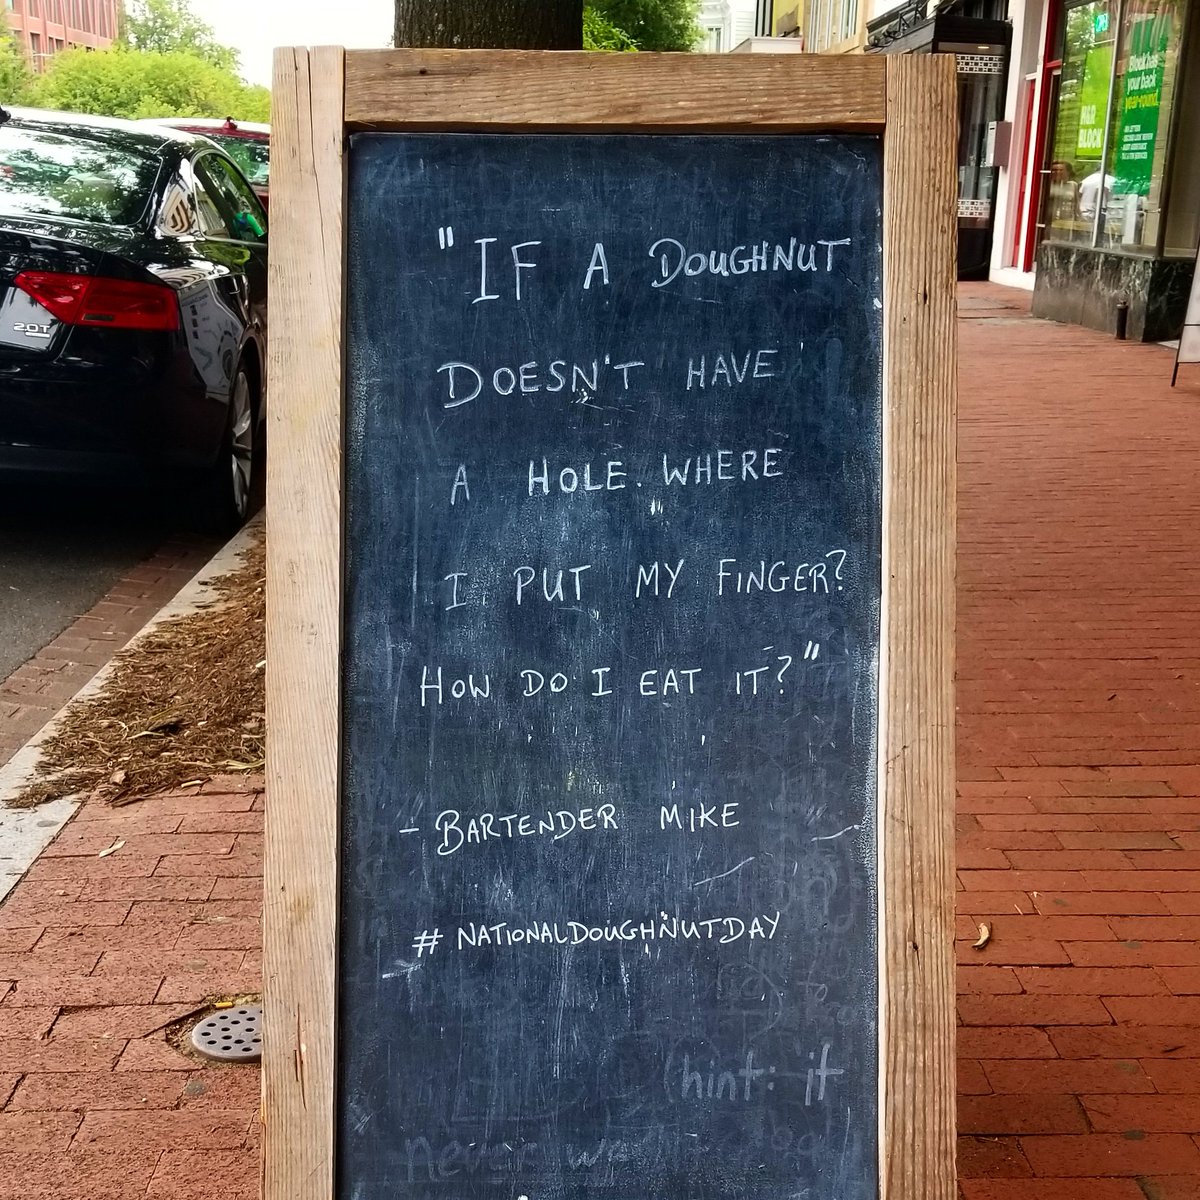 "IF A DOUGHNUT
DOESN'T HAVE
A HOLE. WHERE
I PUT MY FINGER?
HOW DO I EAT IT?"
- BARTENDER MIKE
# NATIONALDOUGHNUTDAY
(hint: it
never
2.0T
H&R
BLOCK
Block has
your back
year-round.